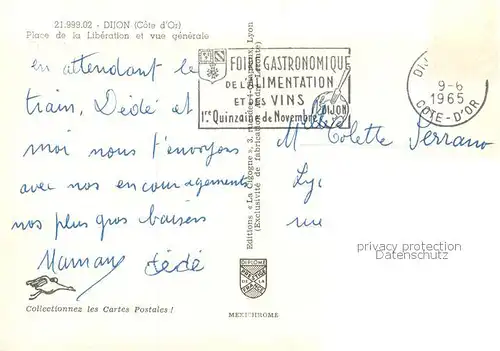 21.999.02 - DIJON (Côte d'Or)
Place de la Libération et vue générale
en attendant le
train, Dédé et
moi nous t'envoyons
avec nos encouragements
nos plus gros baisers
Maman Dédé
Collectionnez les Cartes Postales !
Editions «La Cigogne», 3, rue des Châteaux, Lyon
(Exclusivité de fabrication André Leconte)
FOIRE GASTRONOMIQUE
DE L'ALIMENTATION
ET DES VINS
1re Quinzaine de Novembre DIJON
9-6
1965
COTE-D'OR
Colette Serrano
rue
privacy protection
Datenschutz
DIPLOME
PRESTIGE
DE LA
FRANCE
MEXICHROME